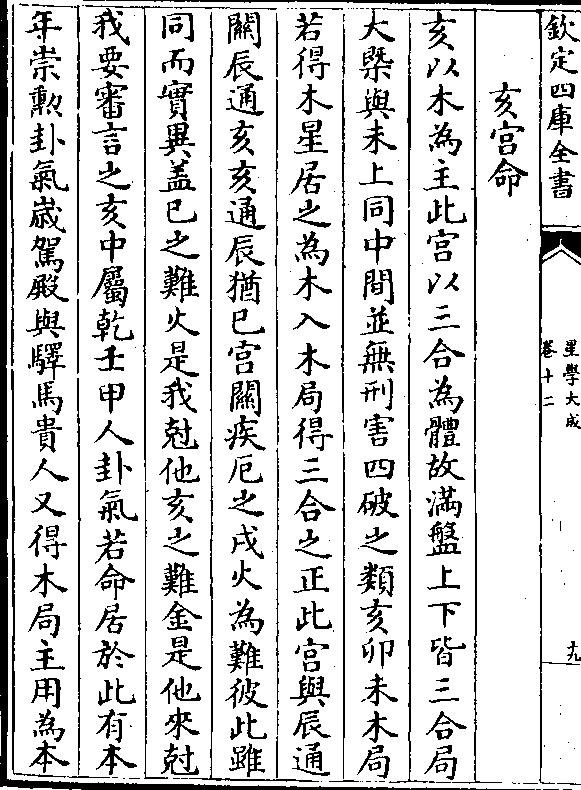 欽定四庫全書
星學大成
卷十二
十九
亥宫命
亥以木為主此宫以三合為體故滿盤上下皆三合局
大槩與未上同中間並無刑害四破之類亥卯未木局
若得木星居之為木入木局得三合之正此宫與辰通
關辰通亥亥通辰猶巳宫關疾厄之戌火為難彼此雖
同而實異盖巳之難火是我尅他亥之難金是他來尅
我要審言之亥中屬乾壬甲人卦氣若命居於此有本
年崇勲卦氣嵗駕殿與驛馬貴人又得木局主用為本